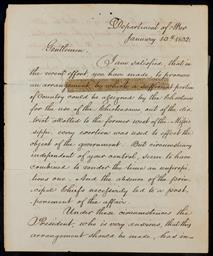 Department of War
January 10th 1832.
Gentlemen.
I am satisfied, that in
the recent effort, you have made, to procure
an arrangement, by which a sufficient portion
of Country could be assigned by the Choctaws
for the use of the Chickasaws out of the dis-
trict allotted to the former west of the Missis-
sippi, every exertion was used to effect the
object of the government. But circumstances
independent of your control, seem to have
combined to render the time an unpropi-
tious one. And the absence of the prin-
cipal Chiefs necessarily led to a post-
ponement of the affair.
Under these circumstances the
President, who is very anxious, that this
arrangement should be made, has in-